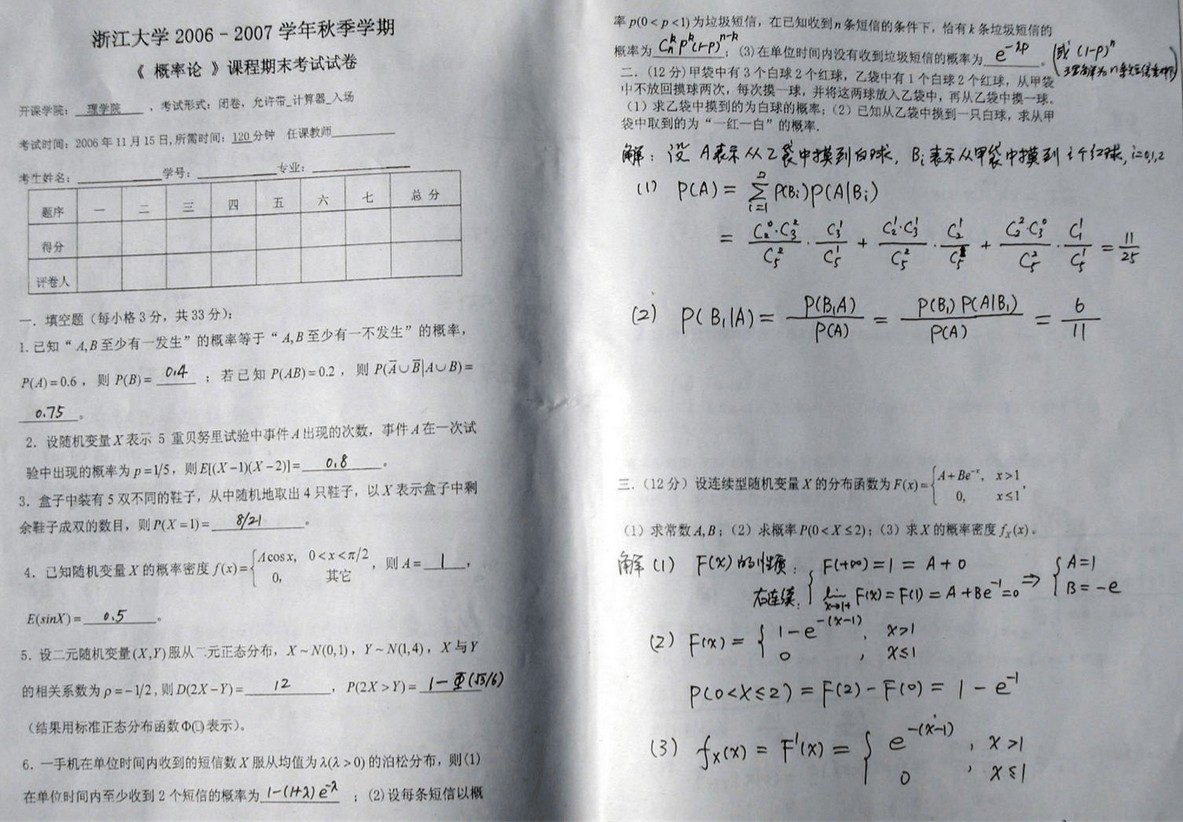 浙江大学 2006－2007 学年秋季学期
《 概率论 》课程期末考试试卷
开课学院： 理学院 ，考试形式：闭卷，允许带_计算器_入场
考试时间：2006 年 11 月 15 日,所需时间：120 分钟 任课教师
考生姓名： 学号： 专业：
题序 一 二 三 四 五 六 七 总 分
得分
评卷人
一．填空题（每小格 3 分，共 33 分）：
1.已知“ A,B 至少有一发生”的概率等于“ A,B 至少有一不发生”的概率，
P(A)=0.6，则 P(B)= 0.4 ；若已知 P(AB)=0.2，则 P(A̅∪B̅|A∪B)=
0.75 。
2．设随机变量 X 表示 5 重贝努里试验中事件 A 出现的次数，事件 A 在一次试
验中出现的概率为 p=1/5，则 E[(X−1)(X−2)]= 0.8 。
3．盒子中装有 5 双不同的鞋子，从中随机地取出 4 只鞋子，以 X 表示盒子中剩
余鞋子成双的数目，则 P(X=1)= 8/21 。
4．已知随机变量 X 的概率密度 f(x)={Acosx, 0<x<π/2
0, 其它 ，则 A= 1 ，
E(sinX)= 0.5 。
5．设二元随机变量(X,Y)服从二元正态分布，X~N(0,1)，Y~N(1,4)，X 与 Y
的相关系数为 ρ=−1/2，则 D(2X−Y)= 12 ，P(2X>Y)= 1−Φ(√3/6)
（结果用标准正态分布函数Φ(□)表示）。
6．一手机在单位时间内收到的短信数 X 服从均值为 λ(λ>0)的泊松分布，则(1)
在单位时间内至少收到 2 个短信的概率为 1−(1+λ)e^-λ ；(2)设每条短信以概
率 p(0<p<1)为垃圾短信，在已知收到 n 条短信的条件下，恰有 k 条垃圾短信的
概率为 C_n^k p^k(1-p)^n-k ；(3)在单位时间内没有收到垃圾短信的概率为 e^-λp 。 (或 (1-p)^n
二．(12 分)甲袋中有 3 个白球 2 个红球，乙袋中有 1 个白球 2 个红球，从甲袋
中不放回摸球两次，每次摸一球，并将这两球放入乙袋中，再从乙袋中摸一球。
（1）求乙袋中摸到的为白球的概率；（2）已知从乙袋中摸到一只白球，求从甲
袋中取到的为“一红一白”的概率.
解：设 A表示从乙袋中摸到白球，Bi表示从甲袋中摸到 i个红球，i=0,1,2
(1) P(A) = Σ_{i=1}^{n} P(Bi)P(A|Bi)
= C_2^0·C_3^2/C_5^2 · C_3^1/C_5^1 + C_2^1·C_3^1/C_5^2 · C_2^1/C_5^1 + C_2^2·C_3^0/C_5^2 · C_1^1/C_5^1 = 11/25
(2) P(B₁|A) = P(B₁A)/P(A) = P(B₁)P(A|B₁)/P(A) = 6/11
三．（12 分）设连续型随机变量 X 的分布函数为 F(x)={A+Be^-x, x>1
0, x≤1，
（1）求常数 A,B；（2）求概率 P(0<X≤2)；（3）求 X 的概率密度 f_X(x)。
解 (1) F(x)的性质：{F(+∞)=1 = A+0
右连续：lim_{x→1+} F(x) = F(1) = A+Be^-1=0 ⇒ {A=1
B=-e
(2) F(x) = {1-e^-(x-1), x>1
0, x≤1
P(0<X≤2) = F(2)-F(0) = 1-e^-1
(3) f_X(x) = F'(x) = {e^-(x-1), x>1
0, x≤1